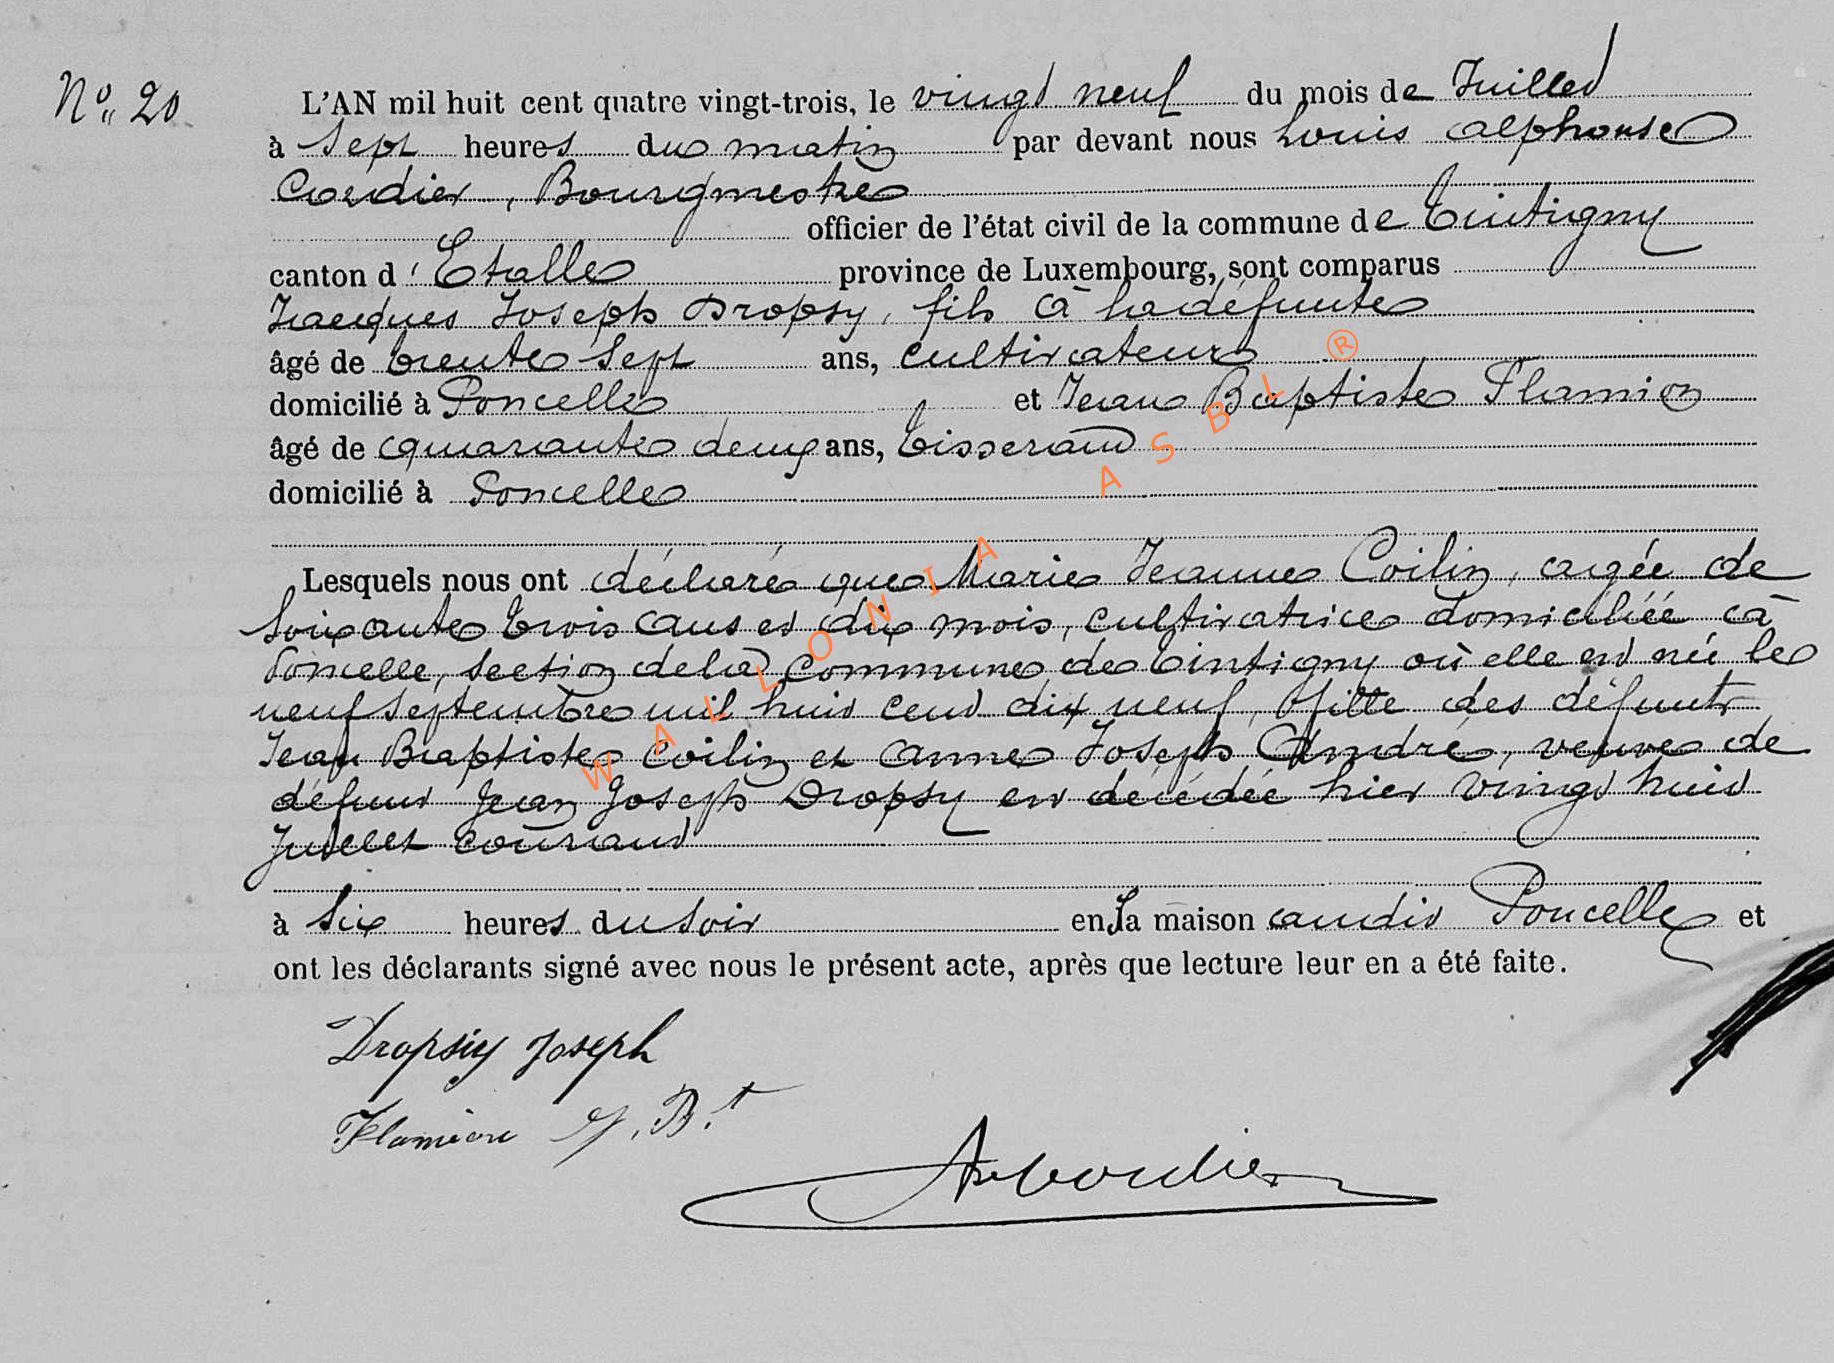 N° 20
L'AN mil huit cent quatre vingt-trois, le vingt neuf du mois de Juillet
à sept heures du matin par devant nous Louis alphonse
Cordier, Bourgmestre
officier de l'état civil de la commune de Tintigny
canton d'Etalle province de Luxembourg, sont comparus
Jacques Joseph Dropsy, fils à la défunte
âgé de trente sept ans, cultivateur
domicilié à Poncelle et Jean Baptiste Flamion
âgé de quarante deux ans, tisserand
domicilié à Poncelle
Lesquels nous ont déclaré que Marie Jeanne Coilin, agée de
soixante trois ans et dix mois, cultivatrice domiciliée à
Poncelle, section de la commune de Tintigny où elle est née le
neuf septembre mil huit cent dix neuf, fille des défunts
Jean Baptiste Coilin et anne Joseph André, veuve de
défunt Jean Joseph Dropsy est décédée hier vingt huit
Juillet courant
à six heures du soir en sa maison audit Poncelle et
ont les déclarants signé avec nous le présent acte, après que lecture leur en a été faite.
Dropsy Joseph
Flamion J. B.t
Cordier
WALLONIA ASBL ®